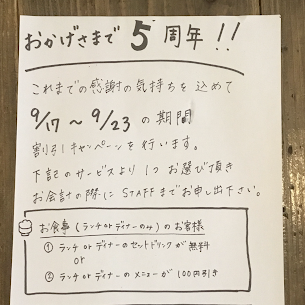 おかげさまで 5 周年 !!
これまでの感謝の気持ちを 込めて
9/17 ～ 9/23 の 期間
割引きキャンペーンを 行います。
下記のサービスより 1つ お選び頂き
お会計の際に STAFFまでお申し出下さい。
お食事 (ランチ or ディナーのみ) のお客様
① ランチ or ディナーのセットドリンクが 無料
or
② ランチ or ディナーの メニューが 100円引き